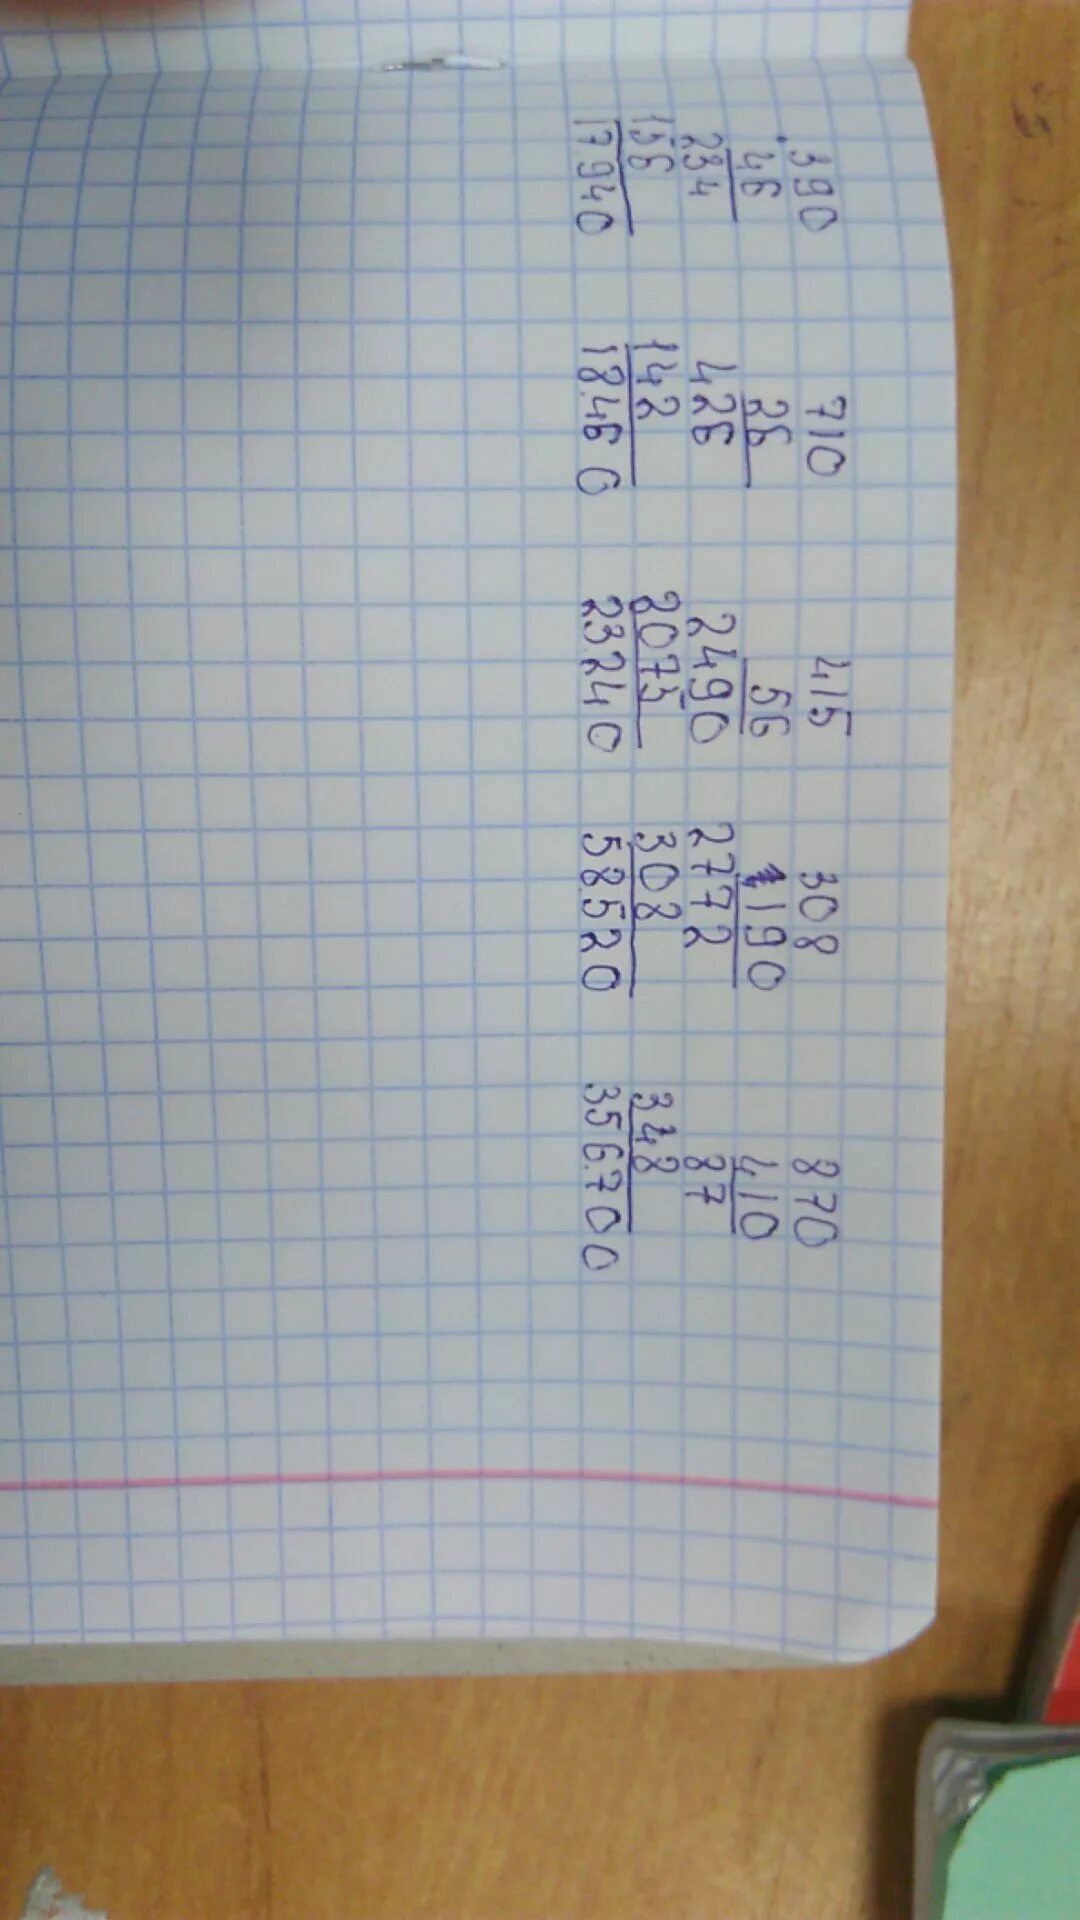 390 710 415 308 870
46 26 56 190 410
234 426 2490 2772 87
156 142 2075 308 348
17940 18460 23240 58520 356700